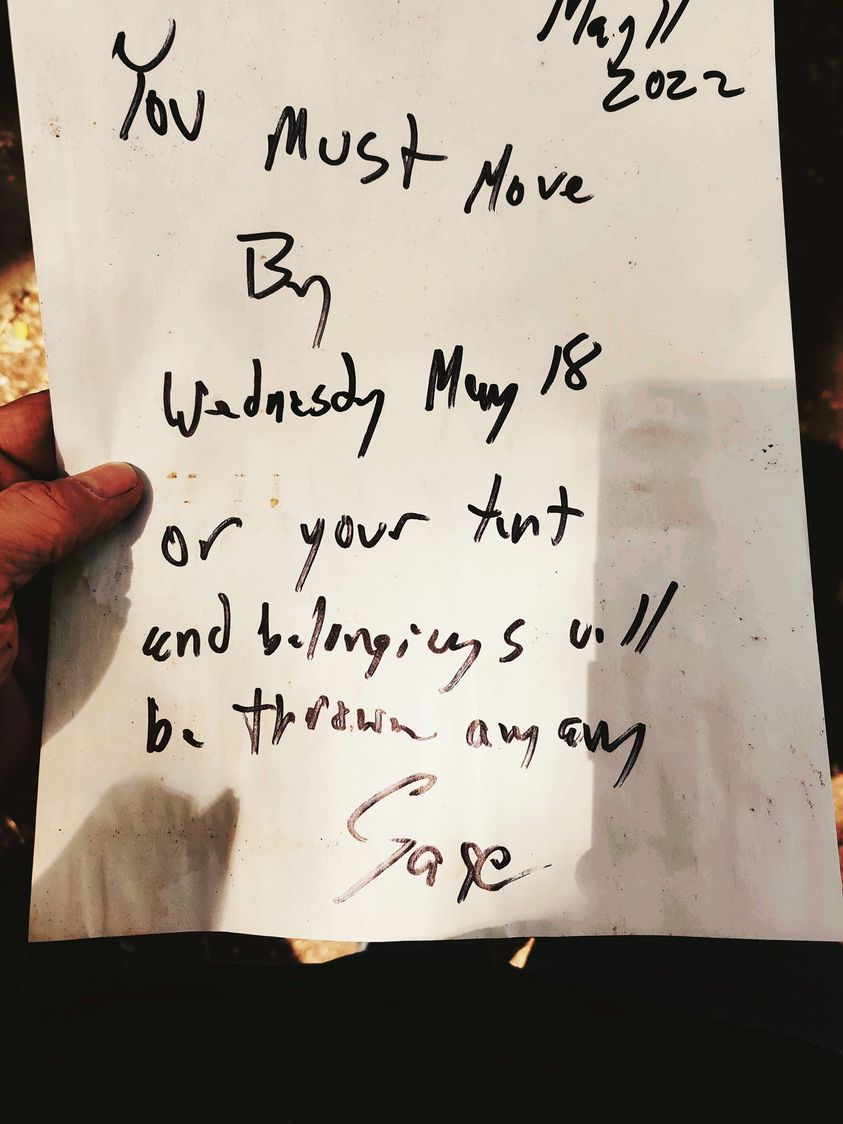 May 11
2022
You Must Move
By
Wednesday May 18
or your tent
and belongings will
be thrown away